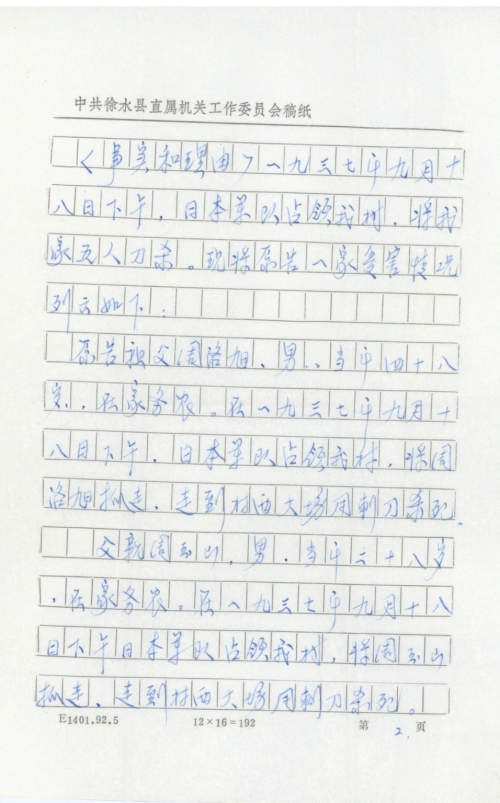 中共徐水县直属机关工作委员会稿纸
〈事实和理由〉一九三七年九月十
八日下午，日本军队占领我村，将我
家五人刀杀。现将原告一家受害情况
列云如下：
原告祖父周洛旭、男、当年四十八
岁，在家务农。在一九三七年九月十
八日下午，日本军队占领我村，将周
洛旭抓走，走到村西大场用刺刀杀死。
父亲周玉山，男，当年二十八岁
，在家务农。在一九三七年九月十八
日下午日本军队占领我村，将周玉山
抓走，走到村西大场用刺刀杀死。
E1401.92.5 12×16=192 第 2. 页